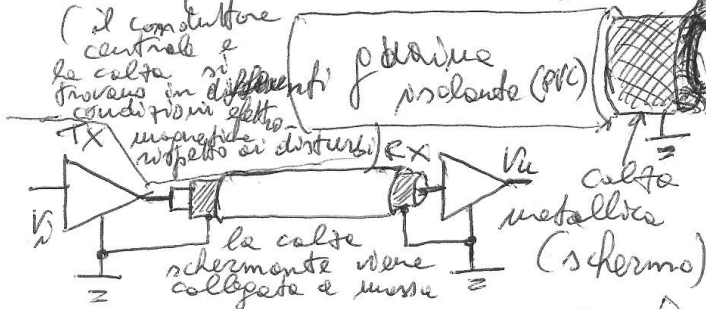 (il conduttore
centrale e
la calza si
trovano in differenti
condizioni elettro-
magnetiche
rispetto ai disturbi)
guaina
isolante (PVC)
TX
RX
Vi
Vu
calza
metallica
(schermo)
la calza
schermante viene
collegata a massa